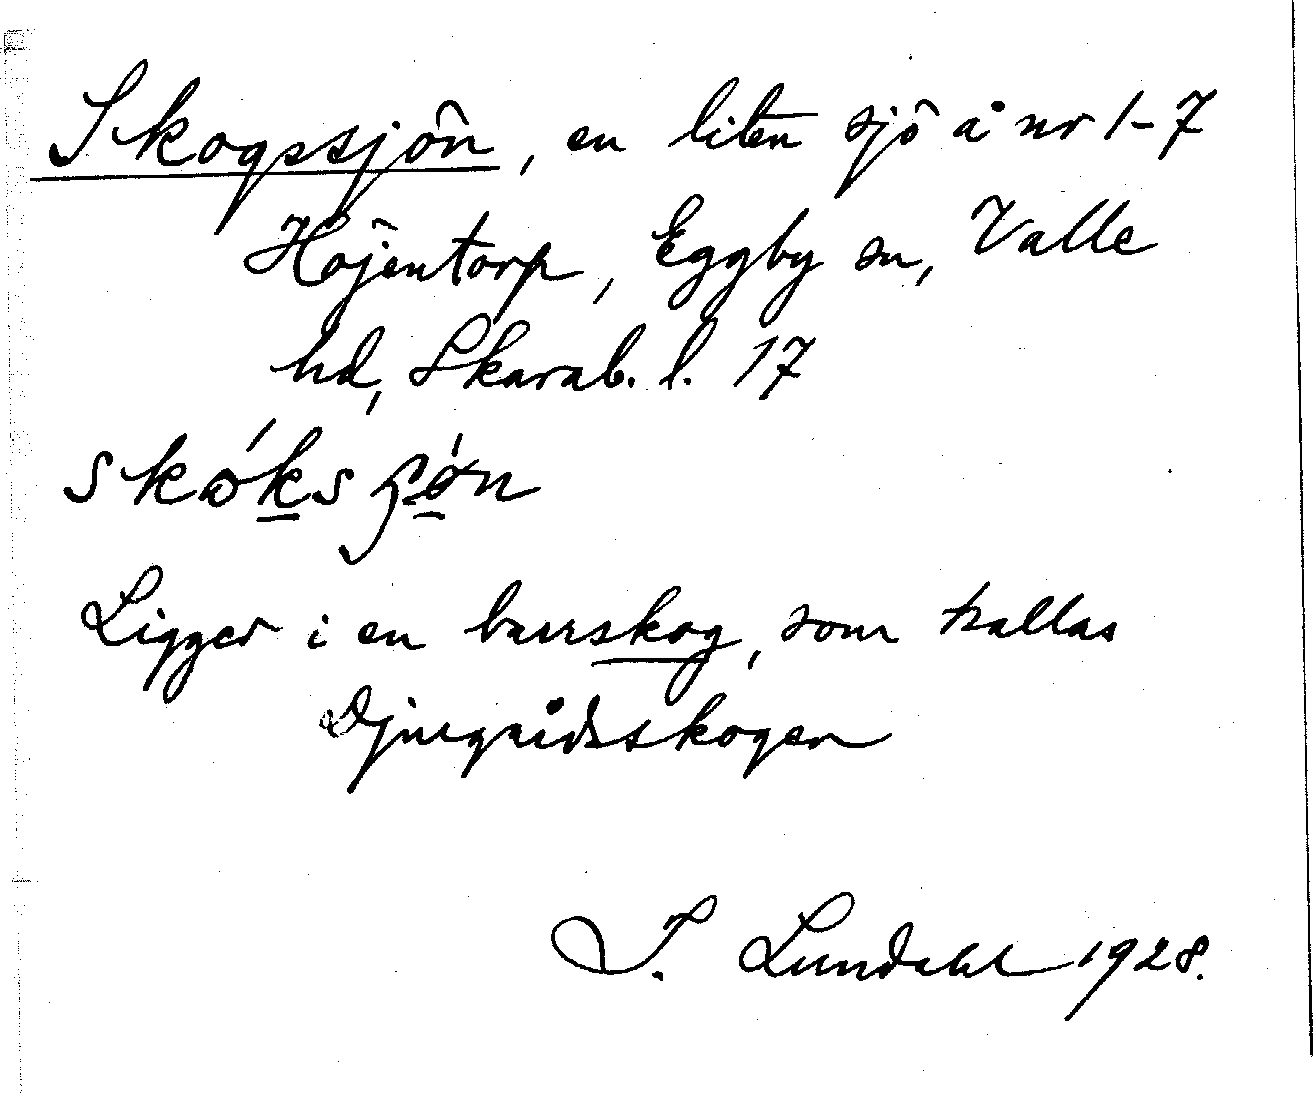 Skogssjön, en liten sjö å nr 1-7
Höjentorp, Eggby sn, Valle
hd, Skarab. l. 17
Ligger i en barrskog, som kallas
Djurgårdsskogen
I. Lundahl 1928.